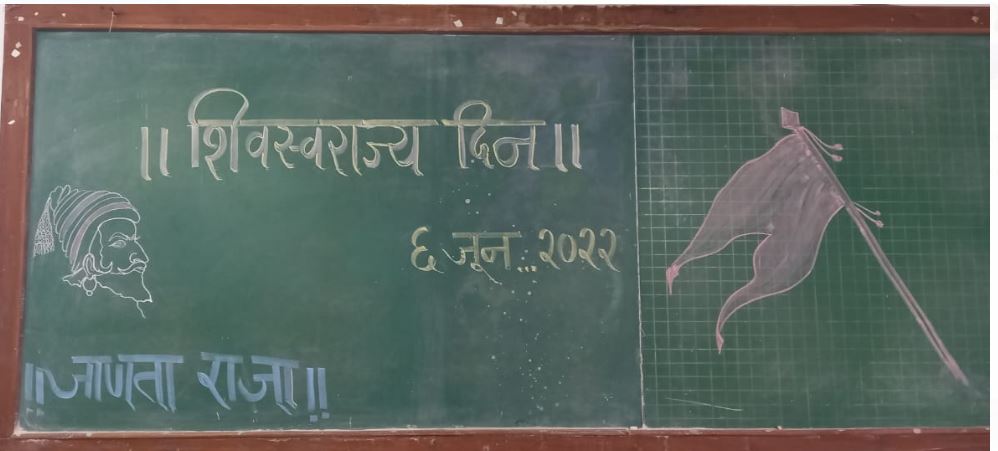 ॥ शिवस्वराज्य दिन ॥
६ जून... २०२२
॥ जाणता राजा ॥